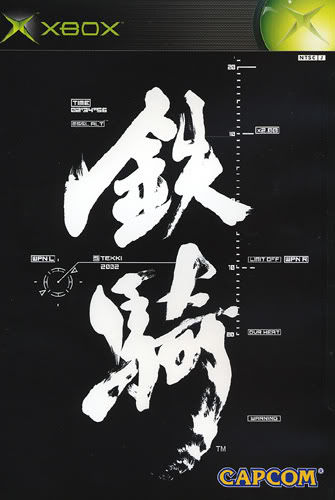 XBOX
NTSC J
20
TIME
02:34:56
MSSL ALT
10
x2.00
鉄
WPN L
TEKKI
2032
LIMIT OFF
WPN R
10
騎
OVR HEAT
20
WARNING
TM
CAPCOM